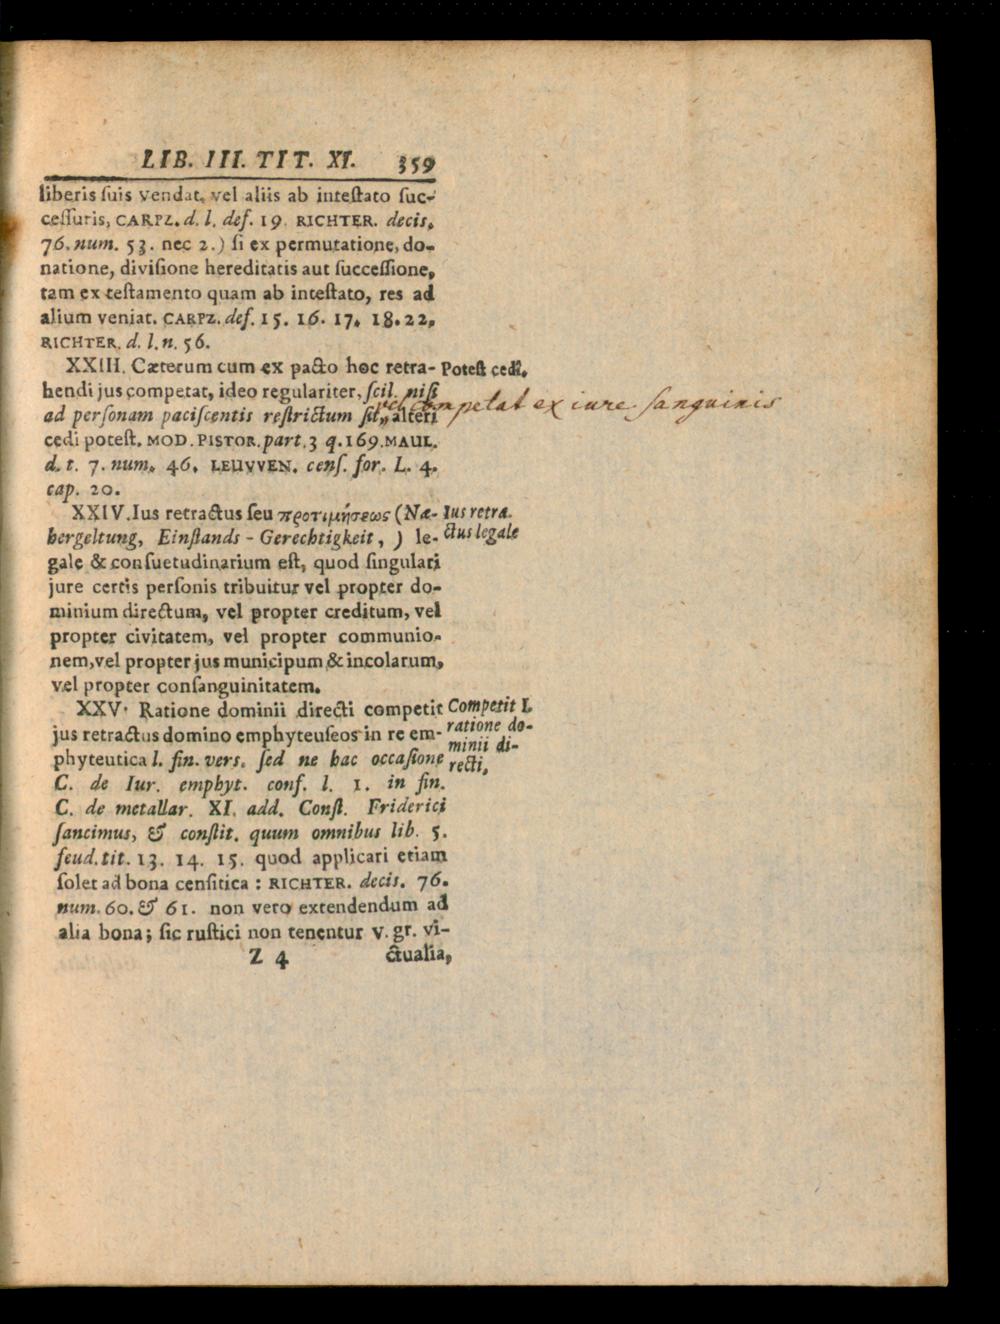 LIB. III. TIT. XI. 359
liberis ſuis vendat, vel aliis ab inteſtato ſuc-
ceſſuris, CARPZ. d. l. def. 19. RICHTER. decis.
76. num. 53. nec 2.) ſi ex permutatione, do-
natione, diviſione hereditatis aut ſucceſſione,
tam ex teſtamento quam ab inteſtato, res ad
alium veniat. CARPZ. def. 15. 16. 17. 18. 22,
RICHTER. d. l. n. 56.
XXIII. Cæterum cum ex pacto hoc retra-
Poteſt cedi.
hendi jus competat, ideo regulariter, ſcil. niſi
ad perſonam paciſcentis reſtrictum ſit, alteri
vel competat ex iure sanguinis
cedi poteſt. MOD. PISTOR. part. 3 q. 169. MAUL.
d. t. 7. num. 46. LEUVVEN. cenſ. for. L. 4.
cap. 20.
XXIV. Ius retractus ſeu προτιμήσεως (Næ-
hergeltung, Einſtands-Gerechtigkeit, ) le-
Ius retra-
ctus legale
gale & conſuetudinarium eſt, quod ſingulari
jure certis perſonis tribuitur vel propter do-
minium directum, vel propter creditum, vel
propter civitatem, vel propter communio-
nem, vel propter jus municipum & incolarum,
vel propter conſanguinitatem.
XXV. Ratione dominii directi competit
jus retractus domino emphyteuſeos in re em-
phyteutica l. fin. verſ. ſed ne hac occaſione
Competit I.
ratione do-
minii di-
recti,
C. de Iur. emphyt. conf. l. 1. in fin.
C. de metallar. XI. add. Conſt. Friderici
ſancimus, & conſtit. quum omnibus lib. 5.
feud. tit. 13. 14. 15. quod applicari etiam
ſolet ad bona cenſitica : RICHTER. decis. 76.
num. 60. & 61. non vero extendendum ad
alia bona; ſic ruſtici non tenentur v. gr. vi-
Z 4 ctualia,